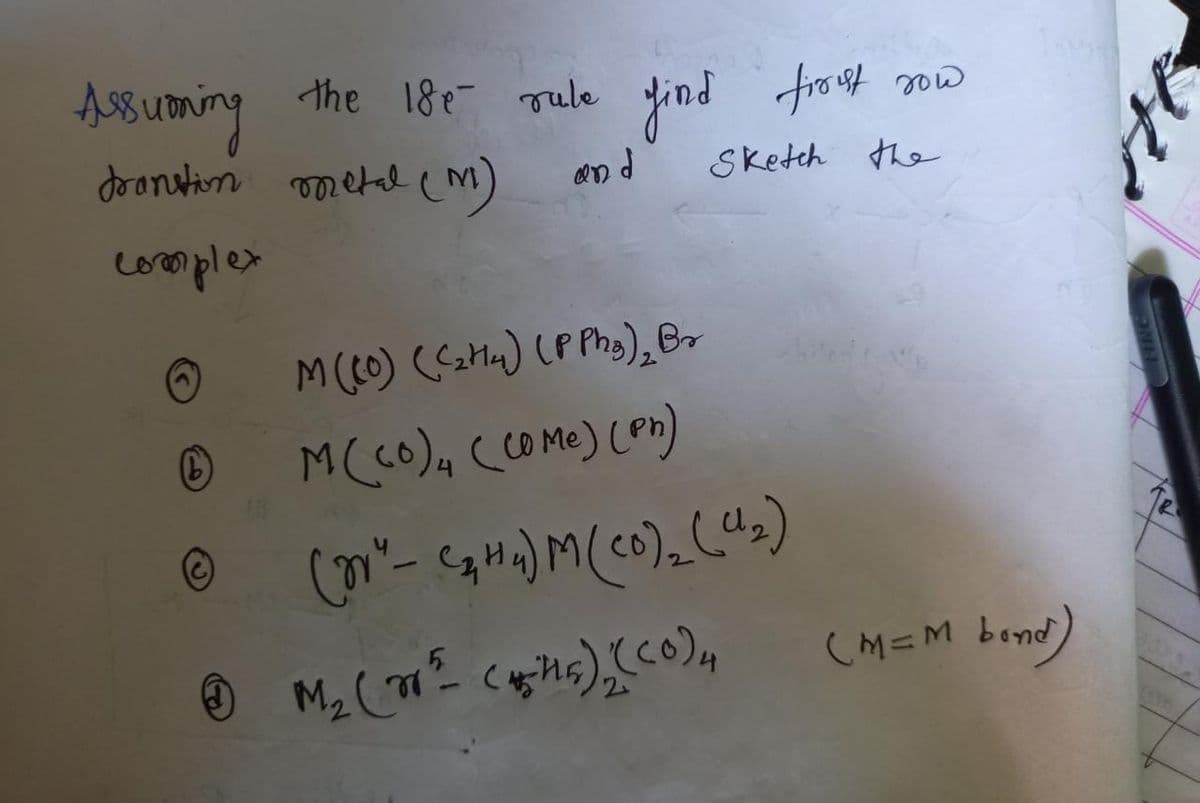 Assuming the 18e⁻ rule find first row
transtion metal (M) and Sketch the
complex
(a) M(CO) (C₂H₄) (PPh₃)₂ Br
(b) M(CO)₄ (COMe) (Ph)
(c) (η⁴- C₄H₄) M(CO)₂ (Cl₂)
(d) M₂ (η⁵- C₅H₅)₂ (CO)₄ (M=M bond)